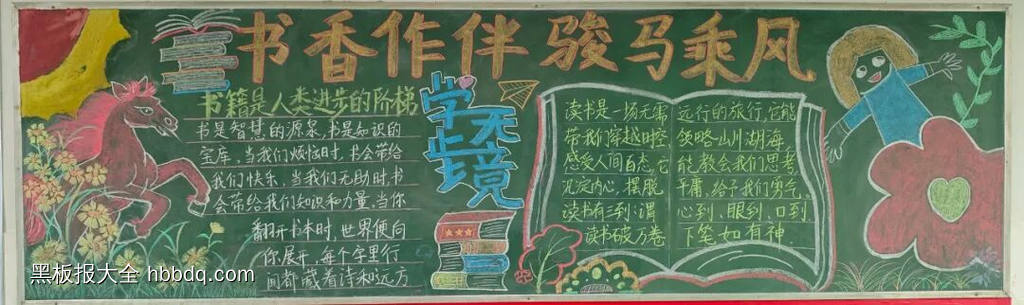 书香作伴 骏马乘风
书籍是人类进步的阶梯
书是智慧的源泉,书是知识的
宝库,当我们烦恼时,书会带给
我们快乐,当我们无助时,书
会带给我们知识和力量,当你
翻开书本时,世界便向
你展开,每个字里行
间都藏着诗和远方
学无
止境
读书是一场无需
带我们穿越时空,
感受人间百态,它
沉淀内心,摆脱
读书有三到:谓
读书破万卷
远行的旅行,它能
领略山川湖海,
能教会我们思考,
平庸,给予我们勇气,
心到、眼到、口到
下笔如有神.
黑板报大全 hbbdq.com